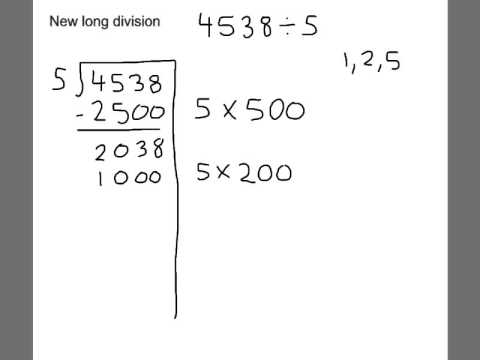 New long division
4538÷5
1,2,5
5)4538
-2500 5×500
2038
1000 5×200